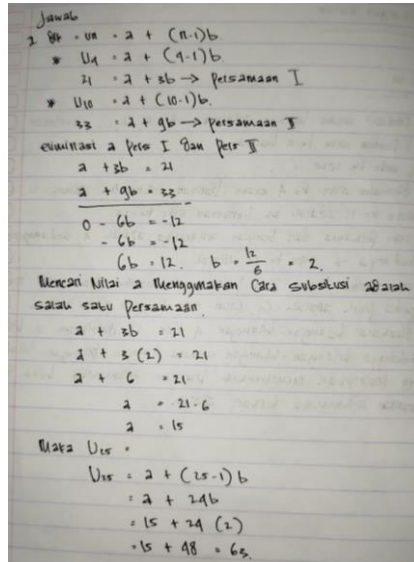 Jawab
1 Dit = un = a + (n-1)b.
* U4 = a + (4-1)b.
21 = a + 3b → Persamaan I
* U10 = a + (10-1)b.
33 = a + 9b → persamaan II
eliminasi a Pers I dan Pers II
a + 3b = 21
a + 9b = 33 -
0 - 6b = -12
- 6b = -12
6b = 12. b = 12/6 = 2.
Mencari Nilai a Menggunakan Cara subsitusi adalah
salah satu Persamaan.
a + 3b = 21
a + 3 (2) = 21
a + 6 = 21
a = 21-6
a = 15
Maka U25 =
U25 = a + (25-1)b
= a + 24b
= 15 + 24 (2)
= 15 + 48 = 63.